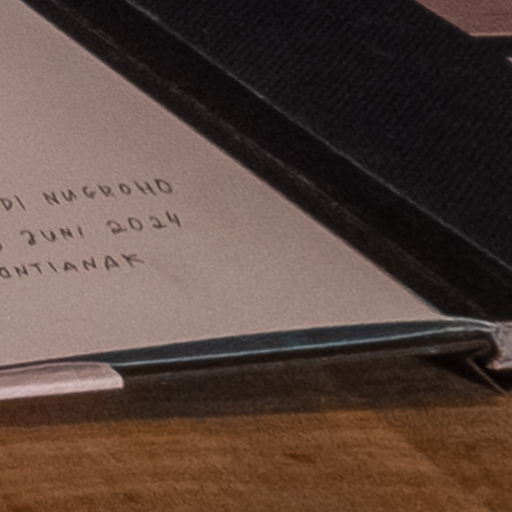 DI NUGROHO
JUNI 2024
ONTIANAK